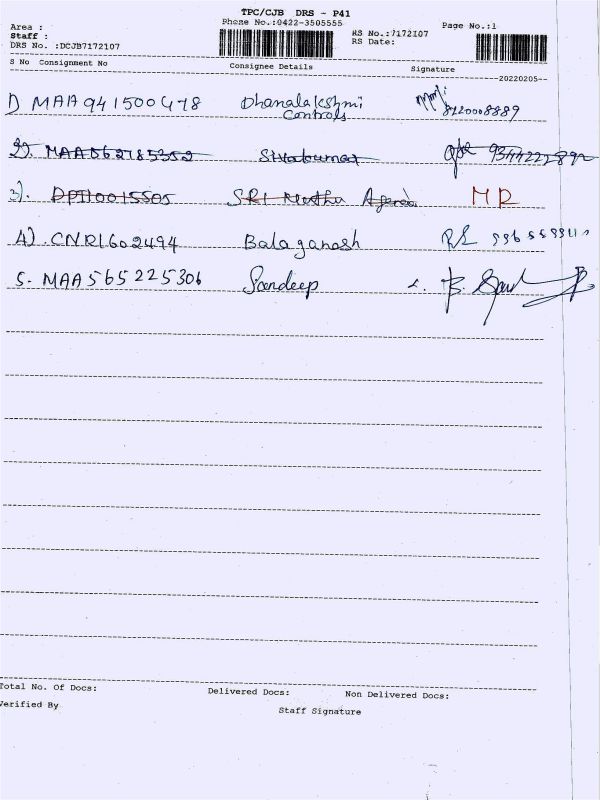 TPC/CJB DRS - P41
Area : Phone No.:0422-3505555 Page No.:1
Staff : RS No.:7172107
DRS No. :DCJB7172107 RS Date:
S No Consignment No Consignee Details Signature
--20220205--
1) MAA941500478 Dhanalakshmi Controls 8120008889
2). MAA562185352 Sivakumar
3). DPI10015505 SRI Muthu Agencies MR
4). CNR1602494 Balaganesh
5. MAA565225306 Sandeep
Total No. Of Docs: Delivered Docs: Non Delivered Docs:
Verified By Staff Signature